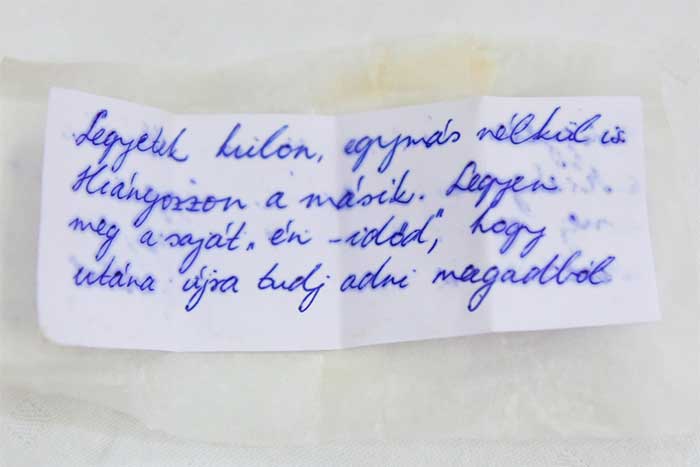 Legyetek külön, egymás nélkül is.
Hiányozzon a másik. Legyen
meg a saját „én-időd", hogy
utána újra tudj adni magadból